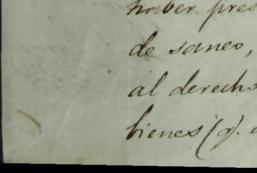 haber pres
de saneo,
al derecho
bienes (g).